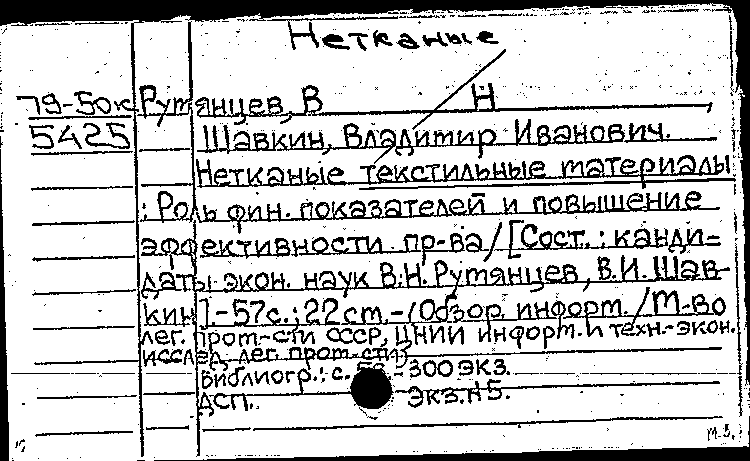 Нетканые
79-50к Рутянцев, В Н
5425 Шавкин, Владимир Иванович.
Нетканые текстильные материалы
: Роль фин. показателей и повышение
эффективности пр-ва / [Сост. : канди-
даты экон. наук В.Н. Румянцев, В.И. Шав-
кин]. - 57 с.; 22 см. - (Обзор. информ. / М-во
лег. пром-сти СССР, ЦНИИ информ. и техн.-экон.
исслед. лег. пром-сти)
Библиогр.: с. - 300 экз.
ДСП. Экз. №5.
м.Б.